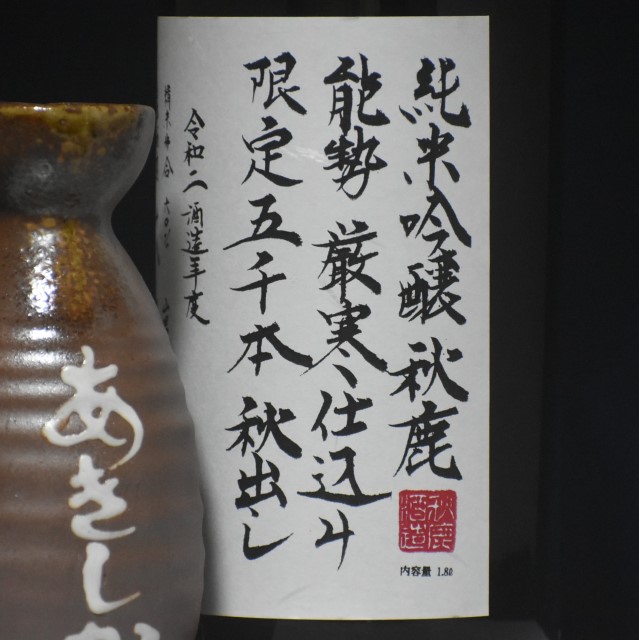 純米吟醸 秋鹿
能勢 厳寒仕込み
限定五千本 秋出し
令和二酒造年度
秋鹿酒造
内容量 1.8ℓ
あきし